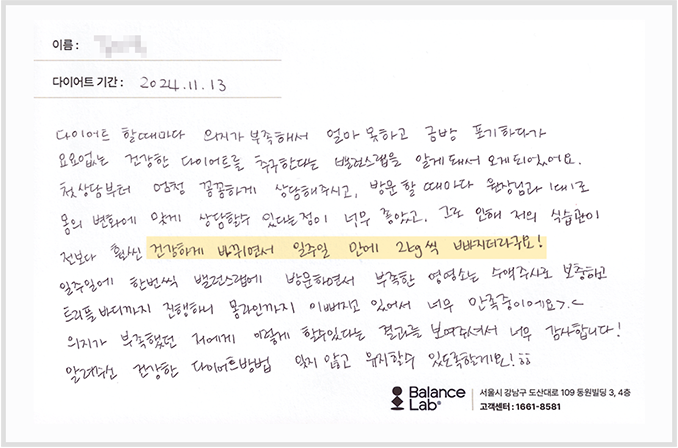 이름 :
다이어트 기간 : 2024.11.13
다이어트 할때마다 의지가 부족해서 얼마 못하고 금방 포기하다가
요요없는 건강한 다이어트를 추구한다는 밸런스랩을 알게돼서 오게되었어요.
첫상담부터 엄청 꼼꼼하게 상담해주시고, 방문할 때마다 원장님과 1대1로
몸의 변화에 맞게 상담할수 있다는점이 너무 좋았고, 그로 인해 저의 식습관이
전보다 훨씬 건강하게 바뀌면서 일주일 만에 2kg씩 빠지더라구요!
일주일에 한번씩 밸런스랩에 방문하면서 부족한 영영소는 수액주사로 보충하고
트리플바디까지 진행하니 몸라인까지 이뻐지고 있어서 너무 만족중이에요>.<
의지가 부족했던 저에게 이렇게 할수있다는 결과를 보여주셔서 너무 감사합니다!
알려주신 건강한 다이어트방법 잊지 않고 유지할수 있도록할게요! ㅎㅎ
Balance Lab® 서울시 강남구 도산대로 109 동원빌딩 3, 4층
고객센터 : 1661-8581